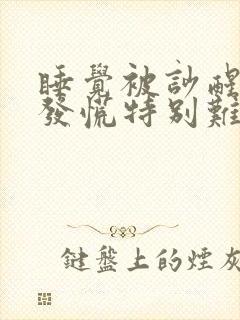 睡覺被訬醒
發慌特别難
鍵盤上的煙灰